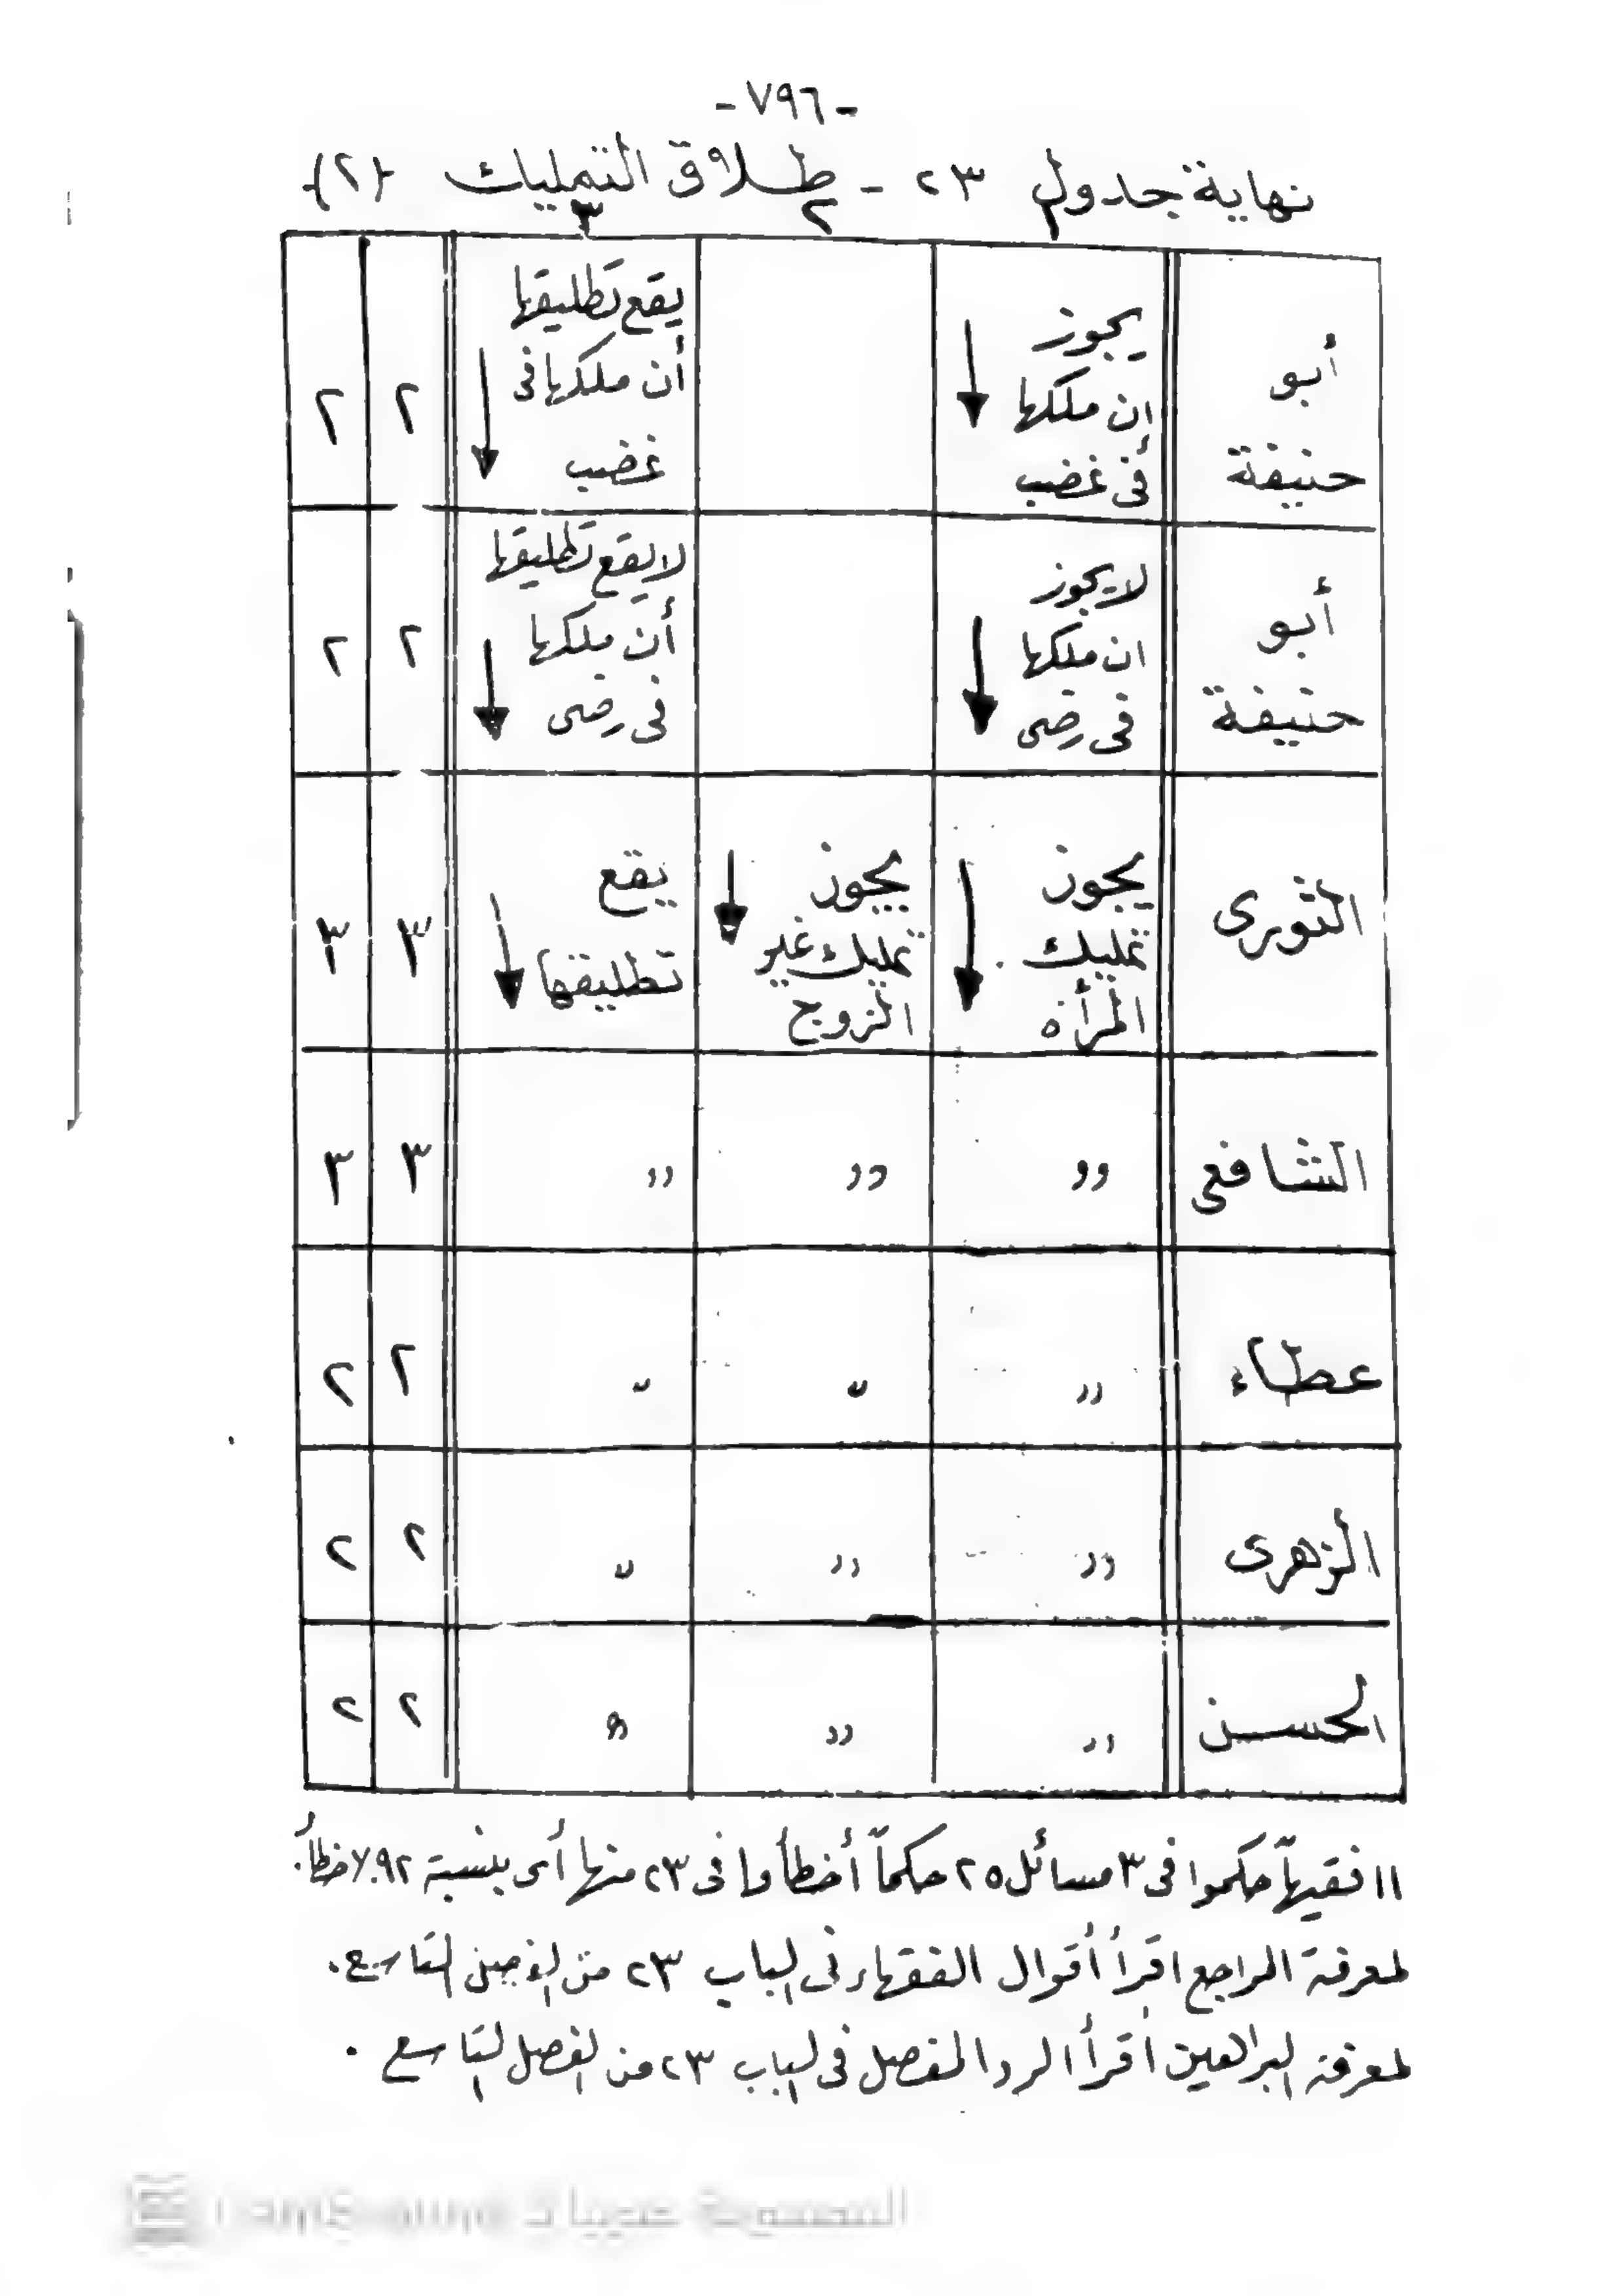 -٧٩٦-
نهاية جدول ٢٣ - طلاق التمليك {٢}
١ ٢ ٣
أبو حنيفة
يجوز
ان ملكها
فى غضب
يقع تطليقها
أن ملكها فى
غضب
٢ ٢
أبو حنيفة
لا يجوز
ان ملكها
فى رضى
لا يقع تطليقها
أن ملكها
فى رضى
٢ ٢
الثورى
يجوز
تمليك
المرأة
يجوز
تمليك غير
الزوج
يقع
تطليقها
٣ ٣
الشافعى ,, ,, ,, ٣ ٣
عطاء ,, ,, ,, ٢ ٢
الزهرى ,, ,, ,, ٢ ٢
الحسن ,, ,, ,, ٢ ٢
١١ فقيهاً حكموا فى ٣ مسائل ٢٥ حكماً أخطأوا فى ٢٣ منها أى بنسبة ٩٢٪ خطأ.
لمعرفة المراجع اقرأ أقوال الفقهاء فى الباب ٢٣ من الفصل التاسع.
لمعرفة البراهين أقرأ الرد المفصل فى الباب ٢٣ من الفصل التاسع .